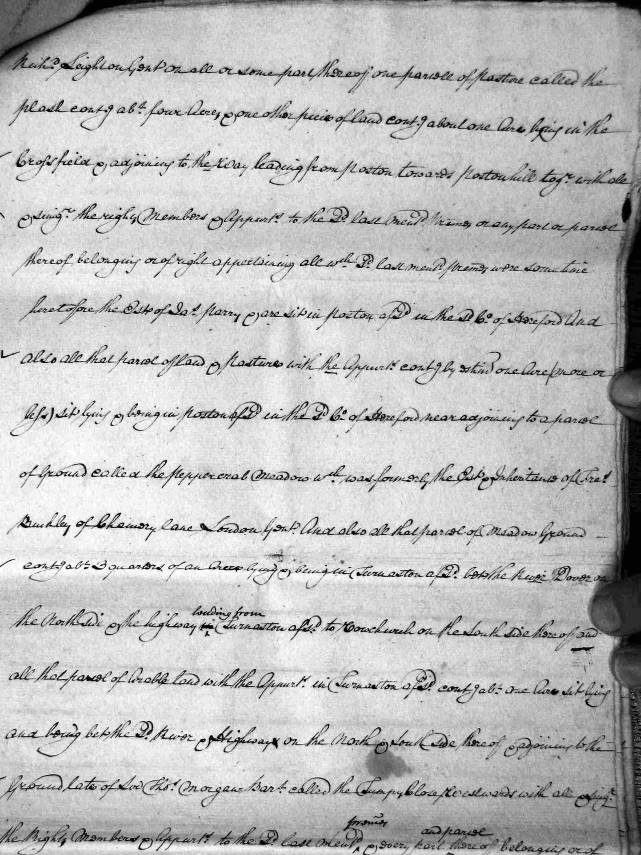 Leighton Gent on all or some part thereof one parcell of Pasture called the
plask contg abt. four Acres & one other piece of land contg about one Acre lying in the
Crossfield & adjoining to the Way leading from Poston towards Postonhill togr. with all
& singr. the rights Members & Appurts. to the sd. last mentd. Prems or any part or parcel
thereof belonging or of right appertaining all wch. sd. last mentd. prems were some time
heretofore the Este of Jas. Parry & are sit in Poston afsd in the sd Co. of Hereford And
also all that parcel of land & pasture with the Appurts. contg by estimn one Acre (more or
less) sit lying & being in Poston afsd in the sd Co. of Hereford near adjoining to a parcel
of Ground called the Meadow wch. was formerly the Este & Inheritance of
of Chancery lane London Gent. And also all that parcel of Meadow Ground
contg abt. 3 quarters of an Acre lying & being in Turnaston afsd. betn the River Dover on
the North side & the highway leading from Turnaston afsd. to Vowchurch on the South side thereof and
all that parcel of Arable land with the Appurts. in Turnaston afsd. contg abt. one Acre sit lying
and being betn the sd. River & Highway on the North & South side thereof & adjoining to the
Ground late of Sir Thos. Morgan Bart. called the Close westwards with all & singr.
the Rights Members & Appurts. to the sd last mentd. premes & every part and parcel thereof belonging or of